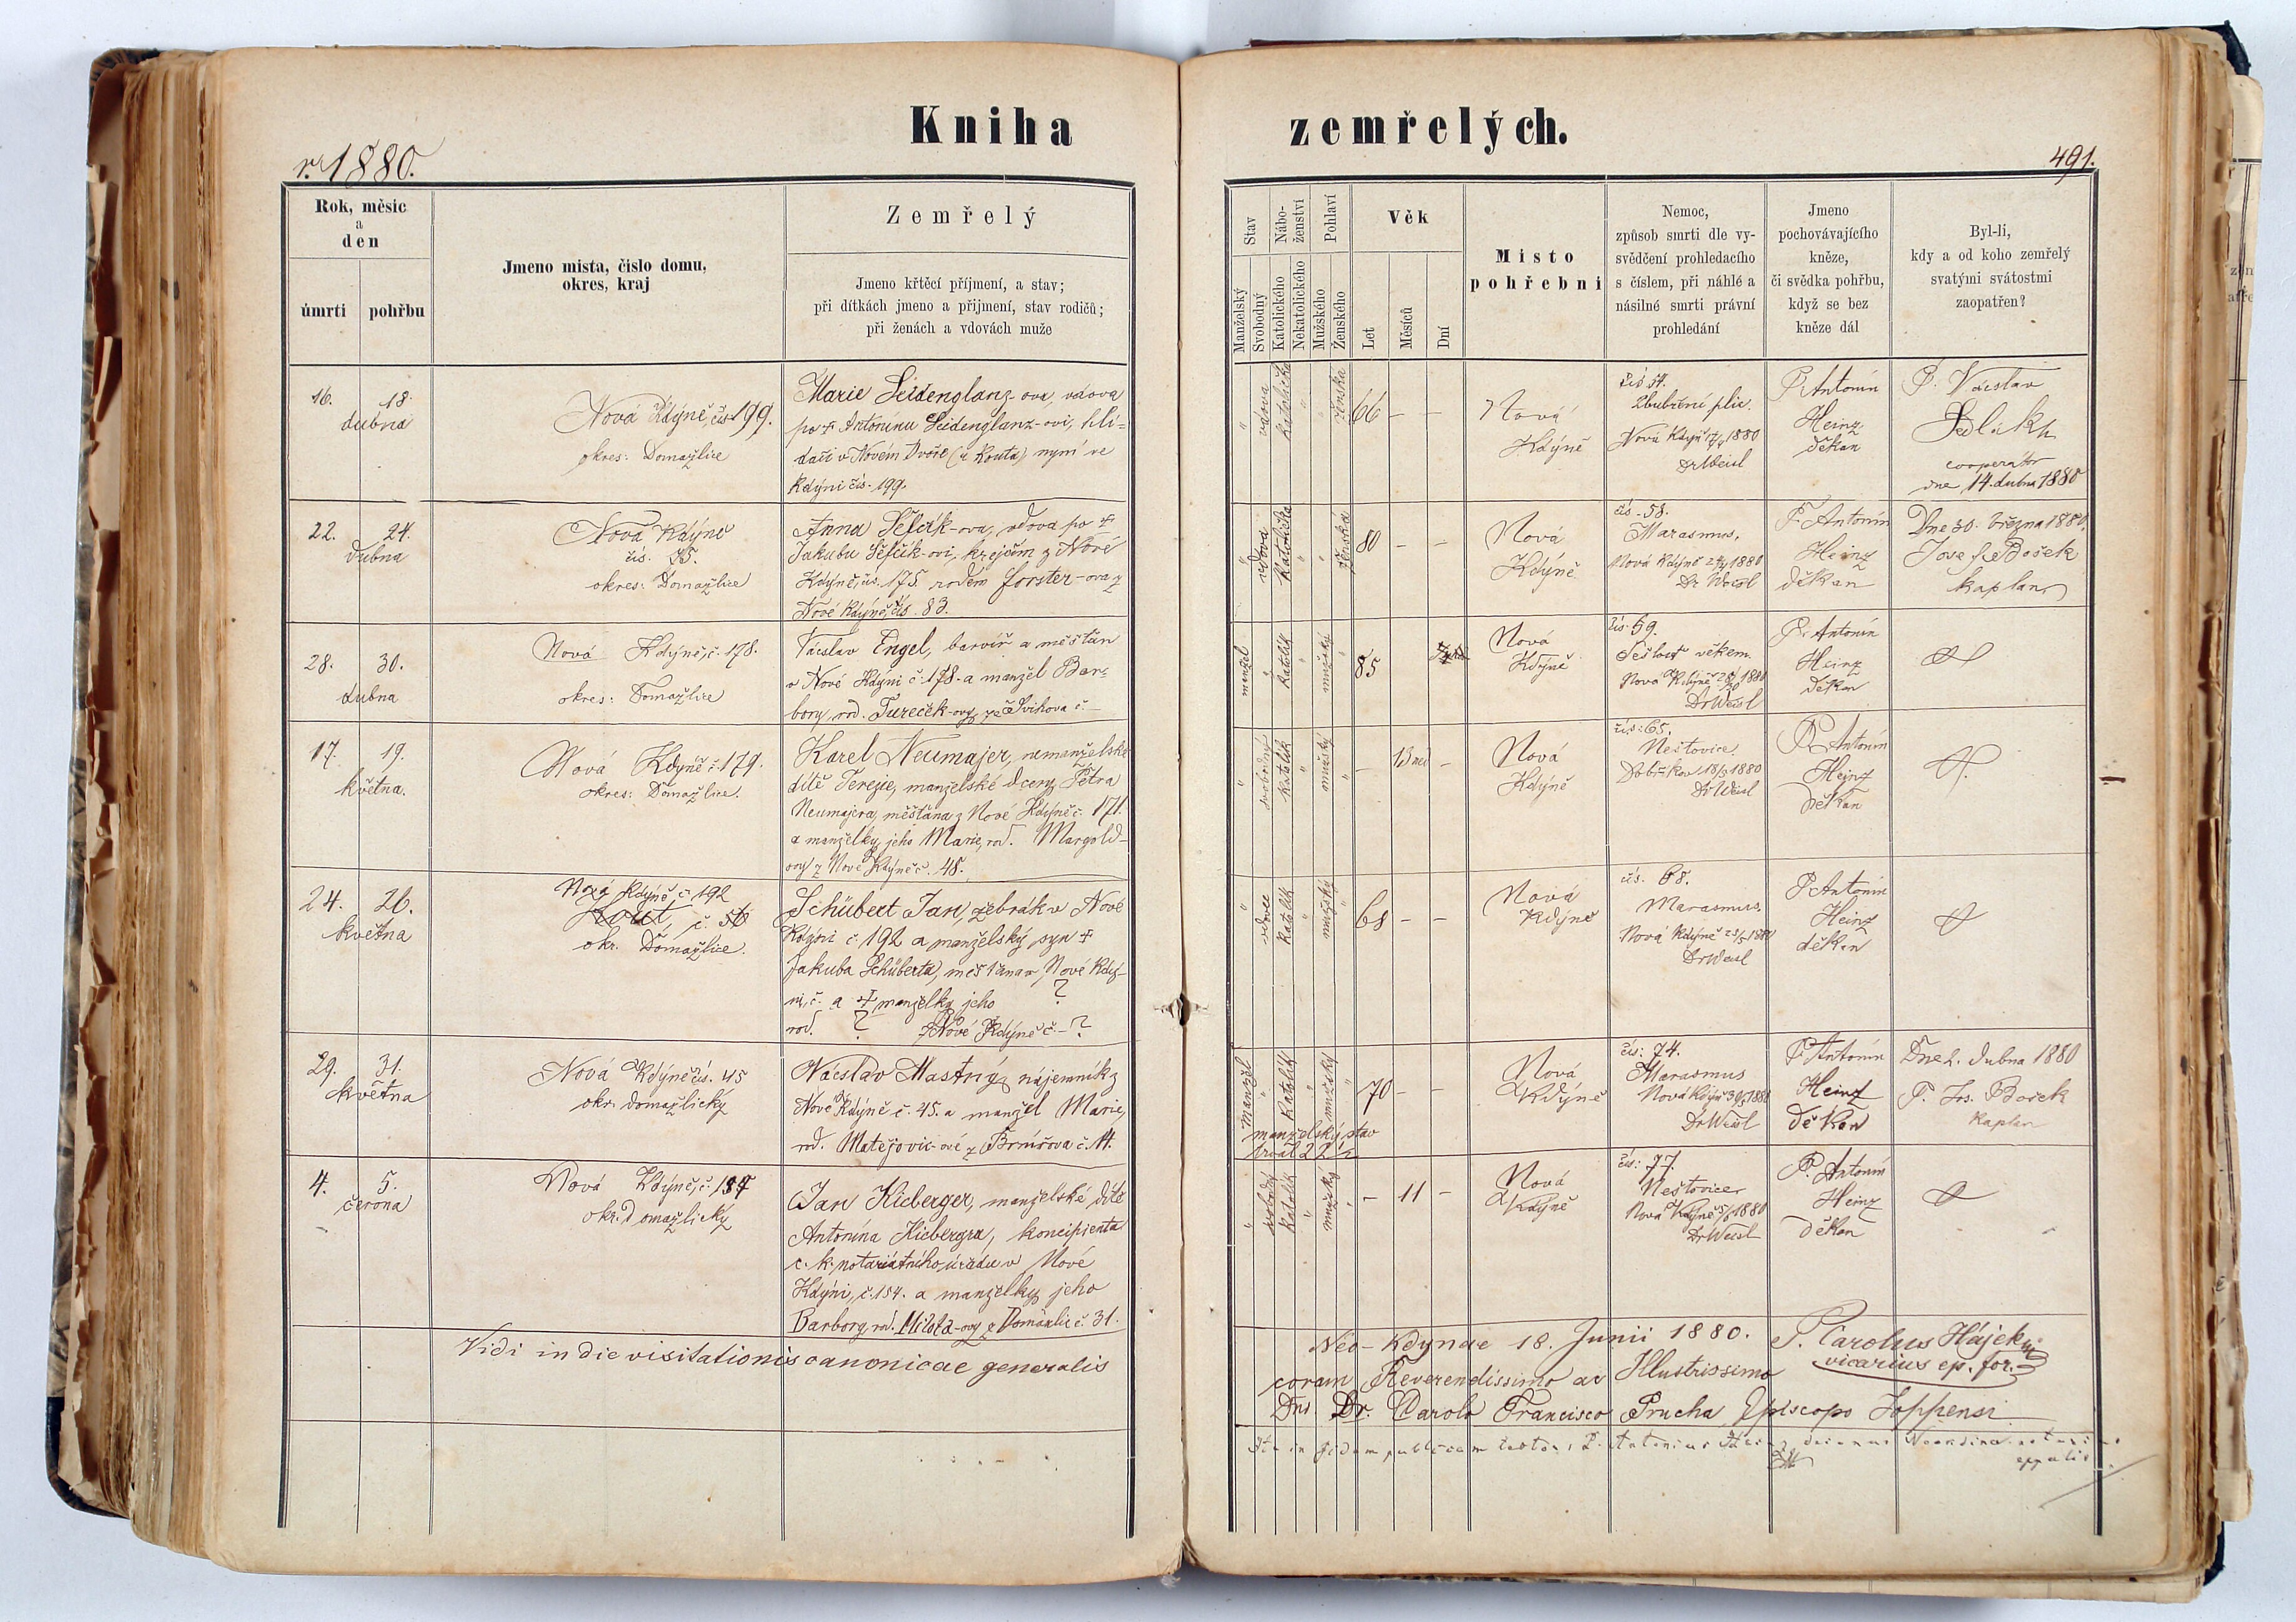 Kniha zemřelých.
r. 1880.
491.
Rok, měsíc
a
den
úmrtí
pohřbu
Jmeno místa, číslo domu,
okres, kraj
Zemřelý
Jmeno křtěcí příjmení, a stav;
při dítkách jmeno a přijmení, stav rodičů;
při ženách a vdovách muže
Stav
Manželský
Svobodný
Nábo-
ženství
Katolického
Nekatolického
Pohlaví
Mužského
Ženského
Věk
Let
Měsíců
Dní
Místo
pohřebni
Nemoc,
způsob smrti dle vy-
svědčení prohledacího
s číslem, při náhlé a
násilné smrti právní
prohledání
Jmeno
pochovávajícího
kněze,
či svědka pohřbu,
když se bez
kněze dál
Byl-li,
kdy a od koho zemřelý
svatými svátostmi
zaopatřen?
16. 18.
dubna
Nová Kdýně, čís. 199.
okres: Domažlice
Marie Seidenglanz-ova, vdova
po + Antonínu Seidenglanz-ovi, hlí=
dači v Novém Dvoře (u Kouta) nyní ve
Kdýni čís. 199.
" vdova katolička " " ženská
66 — —
Nová
Kdýně
čís 54.
Zbubření plic.
Nová Kdýň 17/4 1880
Dr Weisl
P. Antonín
Heinz
děkan
P. Václav
Sedlák
cooperátor
dne 14. dubna 1880
22. 24.
dubna
Nová Kdýně
čís. 35.
okres: Domažlice
Anna Šefčík-ova, vdova po +
Jakubu Šefčík-ovi, krejčím z Nové
Kdýně, čís. 175. rodem Forster-ova z
Nové Kdýně, čís. 83.
" vdova katolička " " ženská
80 — —
Nová
Kdýně
čís. 58.
Marasmus,
Nová Kdýně 24/4 1880
Dr Weisl
P. Antonín
Heinz
děkan
Dne 30. března 1880.
Josef Bošek
kaplan
28. 30.
dubna
Nová Kdýně, č. 178.
okres: Domažlice
Václav Engel, barvíř a měšťan
v Nové Kdýni č. 178. a manžel Bar=
bory, rod. Tureček-ovy, ze Švihova č. —
manžel " katolík " mužský "
85
Nová
Kdýně
čís. 59.
Sešlost věkem
Nová Kdýně 1880
Dr Weisl
P. Antonín
Heinz
děkan
17. 19.
května.
Nová Kdýně č. 179.
okres: Domažlice.
Karel Neumajer, nemanželské
dítě Terezie, manželské dcery Petra
Neumajera, měšťana z Nové Kdýně č. 171.
a manželky jeho Marie, rod. Margold-
ovy z Nové Kdýně č. 48.
" svobodný katolík " mužský "
— 13 —
Nová
Kdýně
čís: 65.
Neštovice.
Dobříkov 18/5 1880
Dr Weisl
P. Antonín
Heinz
děkan
24. 26.
května
Nová Kdýně, č. 192
Kout č. 56
okr. Domažlice.
Schübert Jan, žebrák v Nové
Kdýni č. 192 a manželský syn +
Jakuba Schüberta, měšťana v Nové Kdý-
ni, č. a + manželky jeho ?
rod. ? z Nové Kdýně č. — ?
" vdovec katolík " mužský "
68 — —
Nová
Kdýně
čís. 68.
Marasmus.
Nová Kdýně 25/5 1880
Dr Weisl
P. Antonín
Heinz
děkan
29. 31.
května
Nová Kdýně čís. 45
okr. domažlický
Václav Mastný, nájemník z
Nové Kdýně č. 45. a manžel Marie,
rod. Matějovic-ové z Brnířova č. 14.
manžel " katolík " mužský "
manželský stav
trval 22
70 — —
Nová
Kdýně
čís: 74.
Marasmus
Nová Kdýně 1880
Dr Weisl
P. Antonín
Heinz
děkan
Dne 2. dubna 1880
P. Jos. Bošek
kaplan
4. 5.
června
Nová Kdýně, č. 154
okr. domažlický
Jan Kieberger, manželské dítě
Antonína Kiebergra, koncipienta
c. k. notariátního úřadu v Nové
Kdýni, č. 154. a manželky jeho
Barbory, rod. Milota-ovy z Domažlic č. 31.
" svobodný katolík " mužský "
— 11 —
Nová
Kdýně
čís: 77.
Neštovice
Nová Kdyně 5/6 1880
Dr Weisl
P. Antonín
Heinz
děkan
Vidi in die visitationis canonicae generalis
Neo-Kdynae 18. Junii 1880. P. Carolus Hájek
vicarius ep. for.
coram Reverendissimo ac Illustrissimo
Dno Dr. Carolo Francisco Prucha Episcopo Joppensi
Ita in fidem publicam testor: P. Antonius Heinz decanus